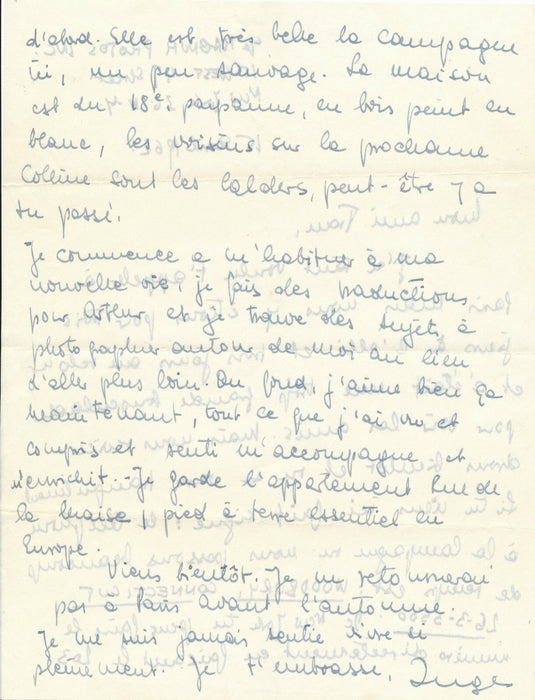 d'abord. Elle est très belle la campagne
ici, un peu sauvage. La maison
est du 18e. paysanne, en bois peint en
blanc, les voisins sur la prochaine
colline sont les Calders, peut-être y a
tu passé.
Je commence a m'habituer à ma
nouvelle vie, je fais des traductions
pour Arthur et je trouve des sujets à
photographier autour de moi au lieu
d'aller plus loin. Au fond, j'aime bien ça
maintenant, tout ce que j'ai vu et
compris et senti m'accompagne et
m'enrichit. Je garde l'appartement Rue de
la Chaise, pied à terre essentiel en
Europe.
Viens bientôt. Je ne retournerai
pas à Paris avant l'automne.
Je me suis jamais sentie vivre si
pleinement. Je t'embrasse, Inge